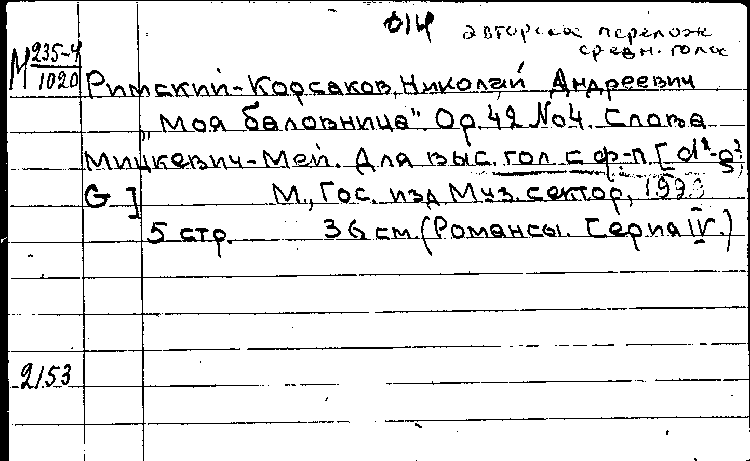 014 авторское перелож
средн. голос
М 235-4
1020
Римский-Корсаков, Николай Андреевич
"Моя баловница". Ор. 42 No4. Слова
Мицкевич-Мей. Для выс. гол. с ф-п. [d¹-g²;
G] М., Гос. изд. Муз. сектор, 1923
5 стр. 36 см. (Романсы. Серия IV.)
2153